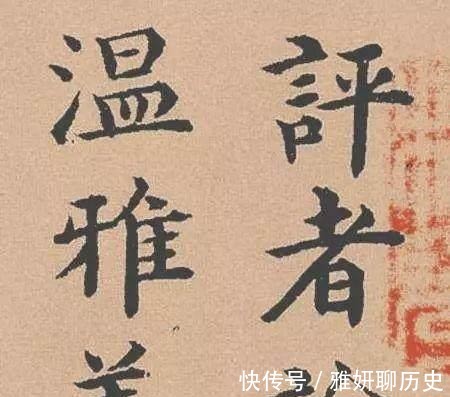 評者
温雅
快传号/雅妍聊历史